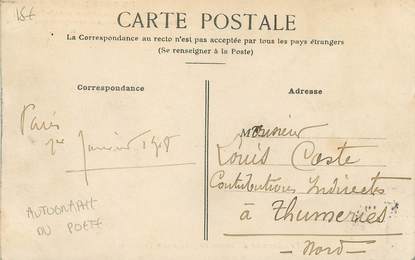 15€
CARTE POSTALE
La Correspondance au recto n'est pas acceptée par tous les pays étrangers
(Se renseigner à la Poste)
Correspondance
Adresse
Paris
Janvier 1908
Monsieur
Louis Coste
Contributions Indirectes
à Thumeries
— Nord —
AUTOGRAPH
DU POETE